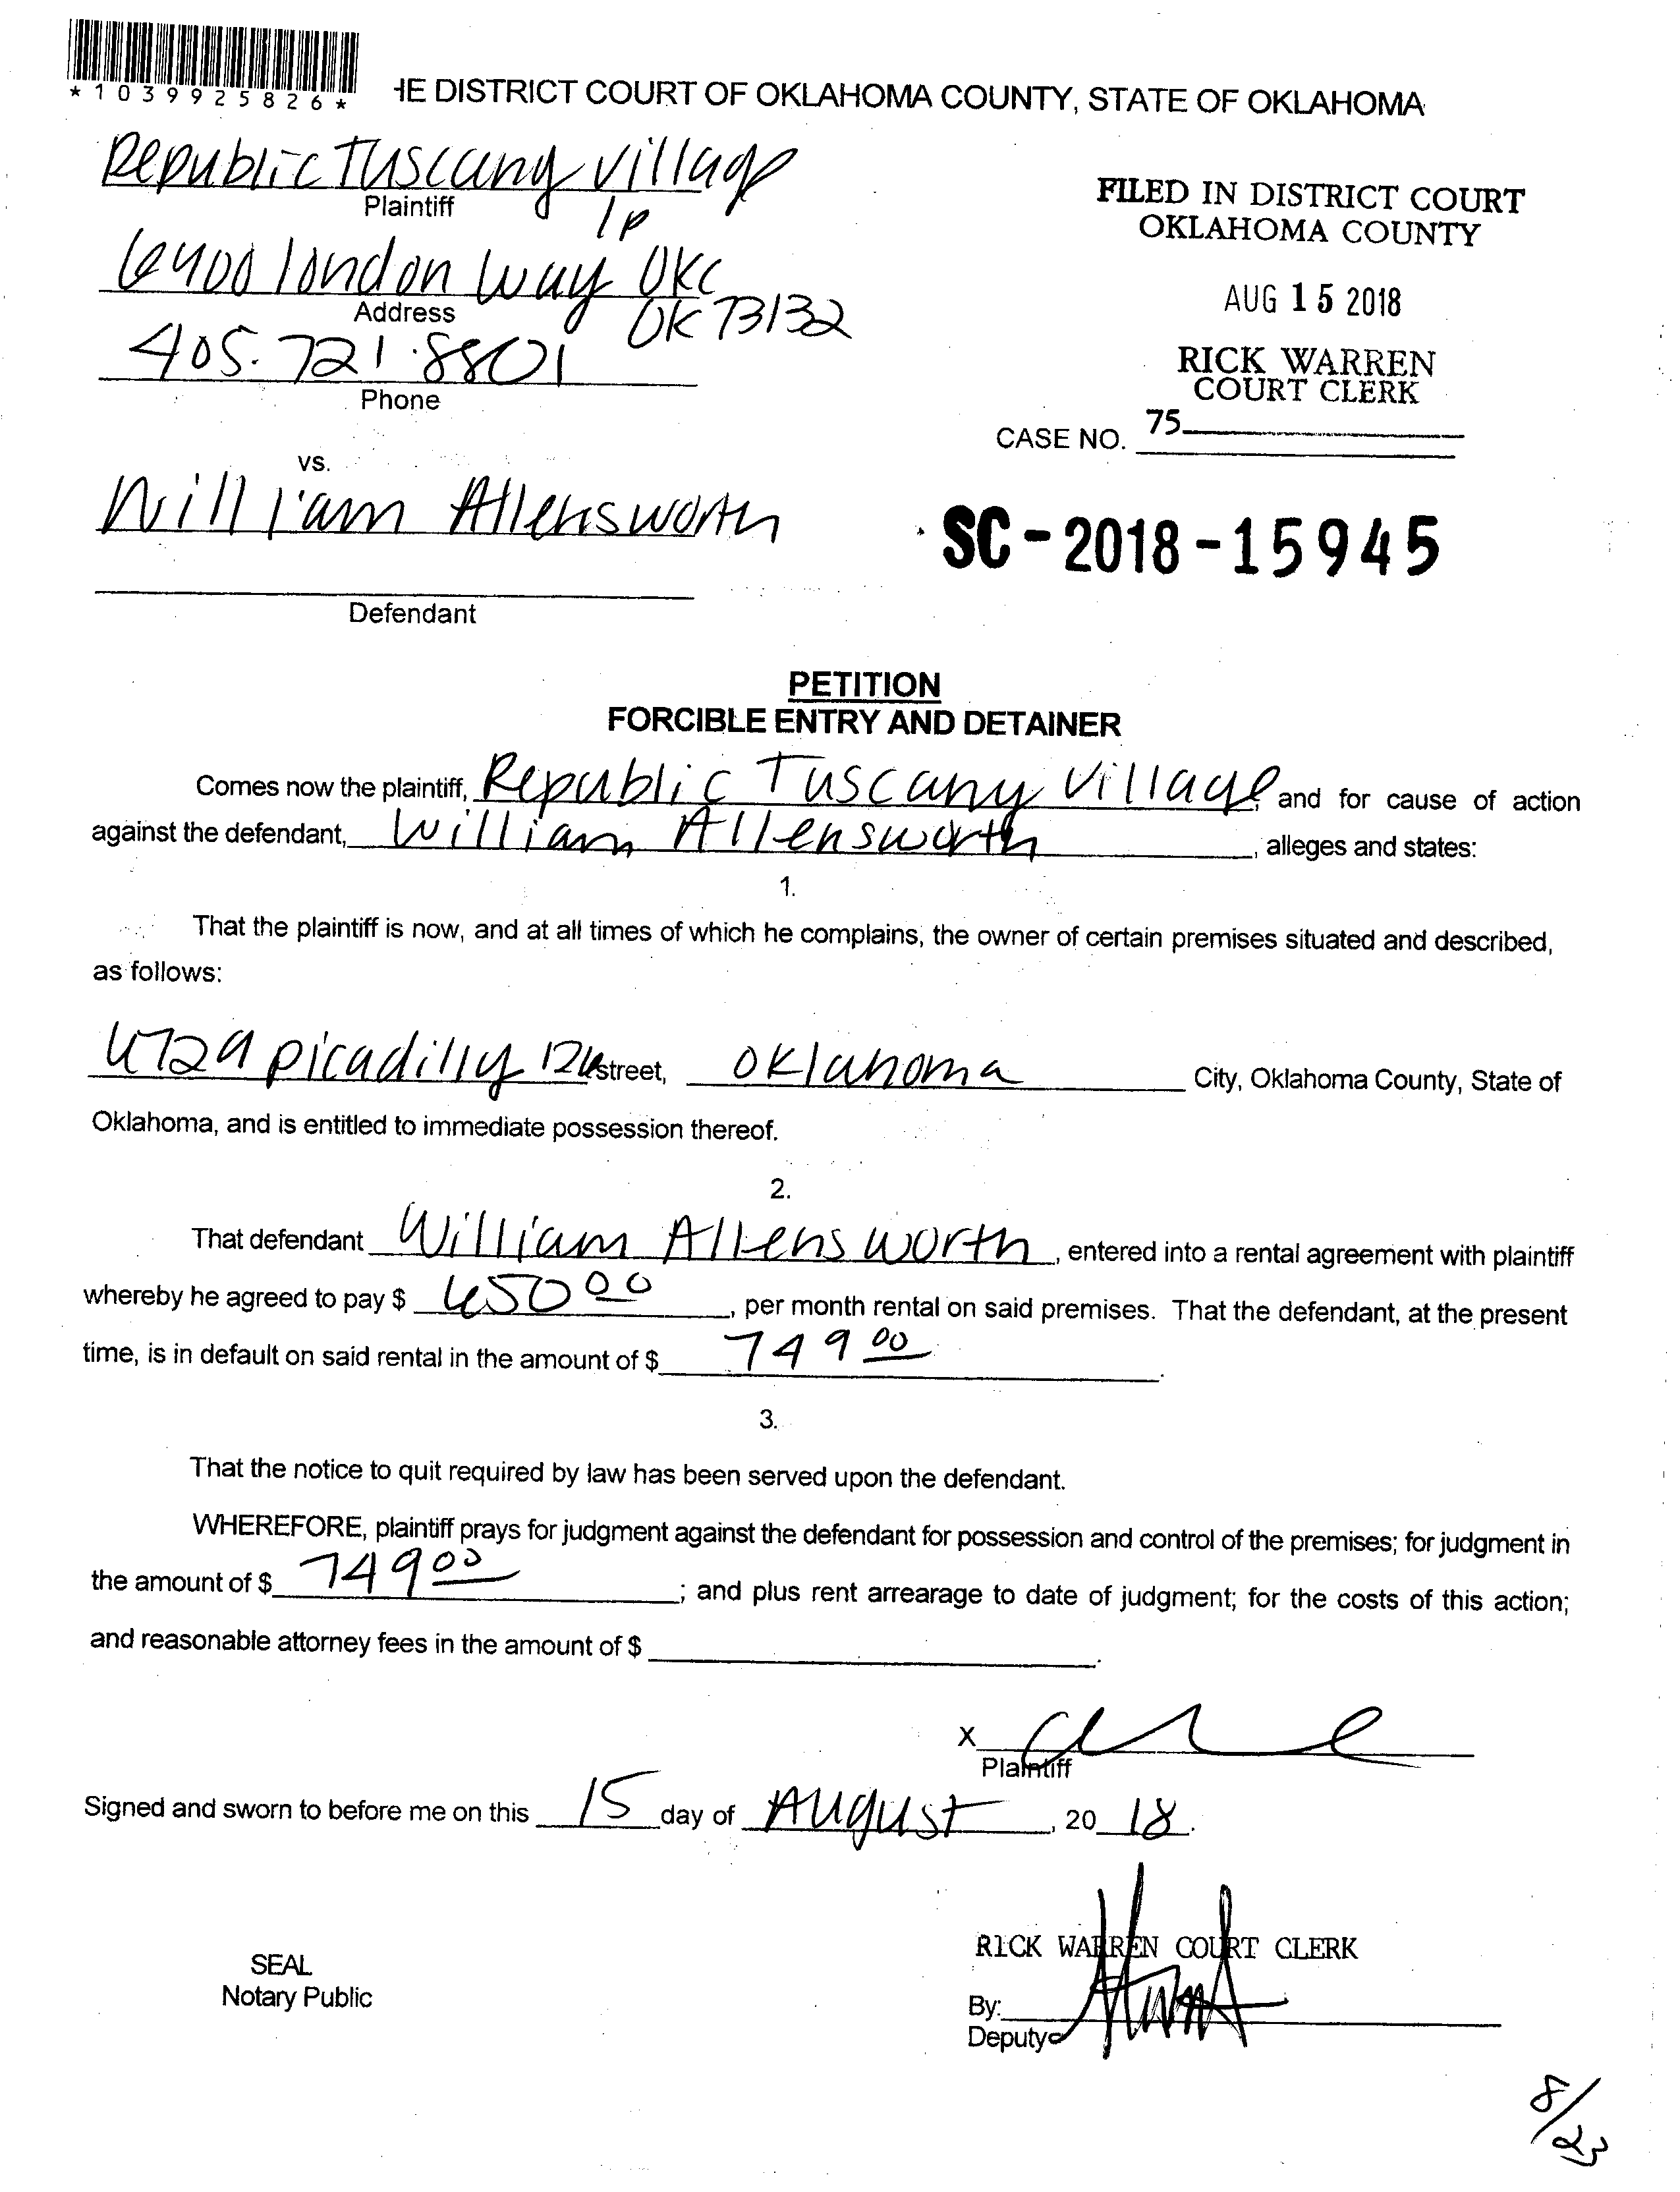 *1039925826*
HE DISTRICT COURT OF OKLAHOMA COUNTY, STATE OF OKLAHOMA
Republic Tuscany Village
Plaintiff
lp
6400 london way OKC
Address
OK 73132
405.721.8801
Phone
FILED IN DISTRICT COURT
OKLAHOMA COUNTY
AUG 15 2018
RICK WARREN
COURT CLERK
CASE NO. 75
vs.
William Allensworth
SC-2018-15945
Defendant
PETITION
FORCIBLE ENTRY AND DETAINER
Comes now the plaintiff, Republic Tuscany Village, and for cause of action
against the defendant, William Allensworth, alleges and states:
1.
That the plaintiff is now, and at all times of which he complains, the owner of certain premises situated and described,
as follows:
6729 picadilly street, oklahoma City, Oklahoma County, State of
Oklahoma, and is entitled to immediate possession thereof.
2.
That defendant William Allensworth, entered into a rental agreement with plaintiff
whereby he agreed to pay $ 650 00, per month rental on said premises. That the defendant, at the present
time, is in default on said rental in the amount of $ 749 00.
3.
That the notice to quit required by law has been served upon the defendant.
WHEREFORE, plaintiff prays for judgment against the defendant for possession and control of the premises; for judgment in
the amount of $ 749 00; and plus rent arrearage to date of judgment; for the costs of this action;
and reasonable attorney fees in the amount of $ .
X
Plaintiff
Signed and sworn to before me on this 15 day of August, 20 18.
RICK WARREN COURT CLERK
SEAL
Notary Public
By:
Deputy
8/23